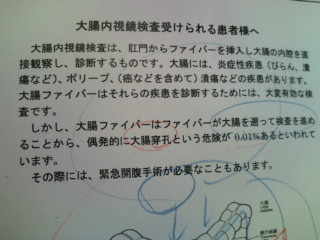 大腸内視鏡検査受けられる患者様へ
大腸内視鏡検査は、肛門からファイバーを挿入し大腸の内腔を直
接観察し、診断するものです。大腸には、炎症性疾患（びらん、潰
瘍など）、ポリープ、（癌などを含めて）潰瘍などの疾患があります。
大腸ファイバーはそれらの疾患を診断するためには、大変有効な検
査です。
しかし、大腸ファイバーはファイバーが大腸を遡って検査を進め
ることから、偶発的に大腸穿孔という危険が 0.01%あるといわれて
います。
その際には、緊急開腹手術が必要なこともあります。
大腸